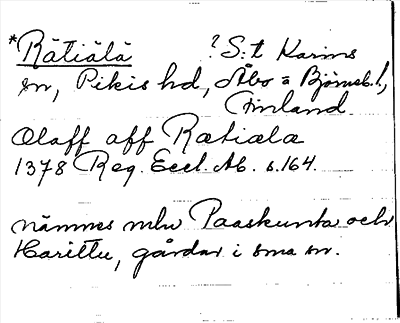 *Rätiälä ? S:t Karins
sn, Pikis hd, Åbo o Björneb. l,
Finland
Olaff aff Rætiala
1378 Reg. Eccl. Ab. s. 164.
nämnes mlu Paaskunta och
Harittu, gårdar i sma sn.